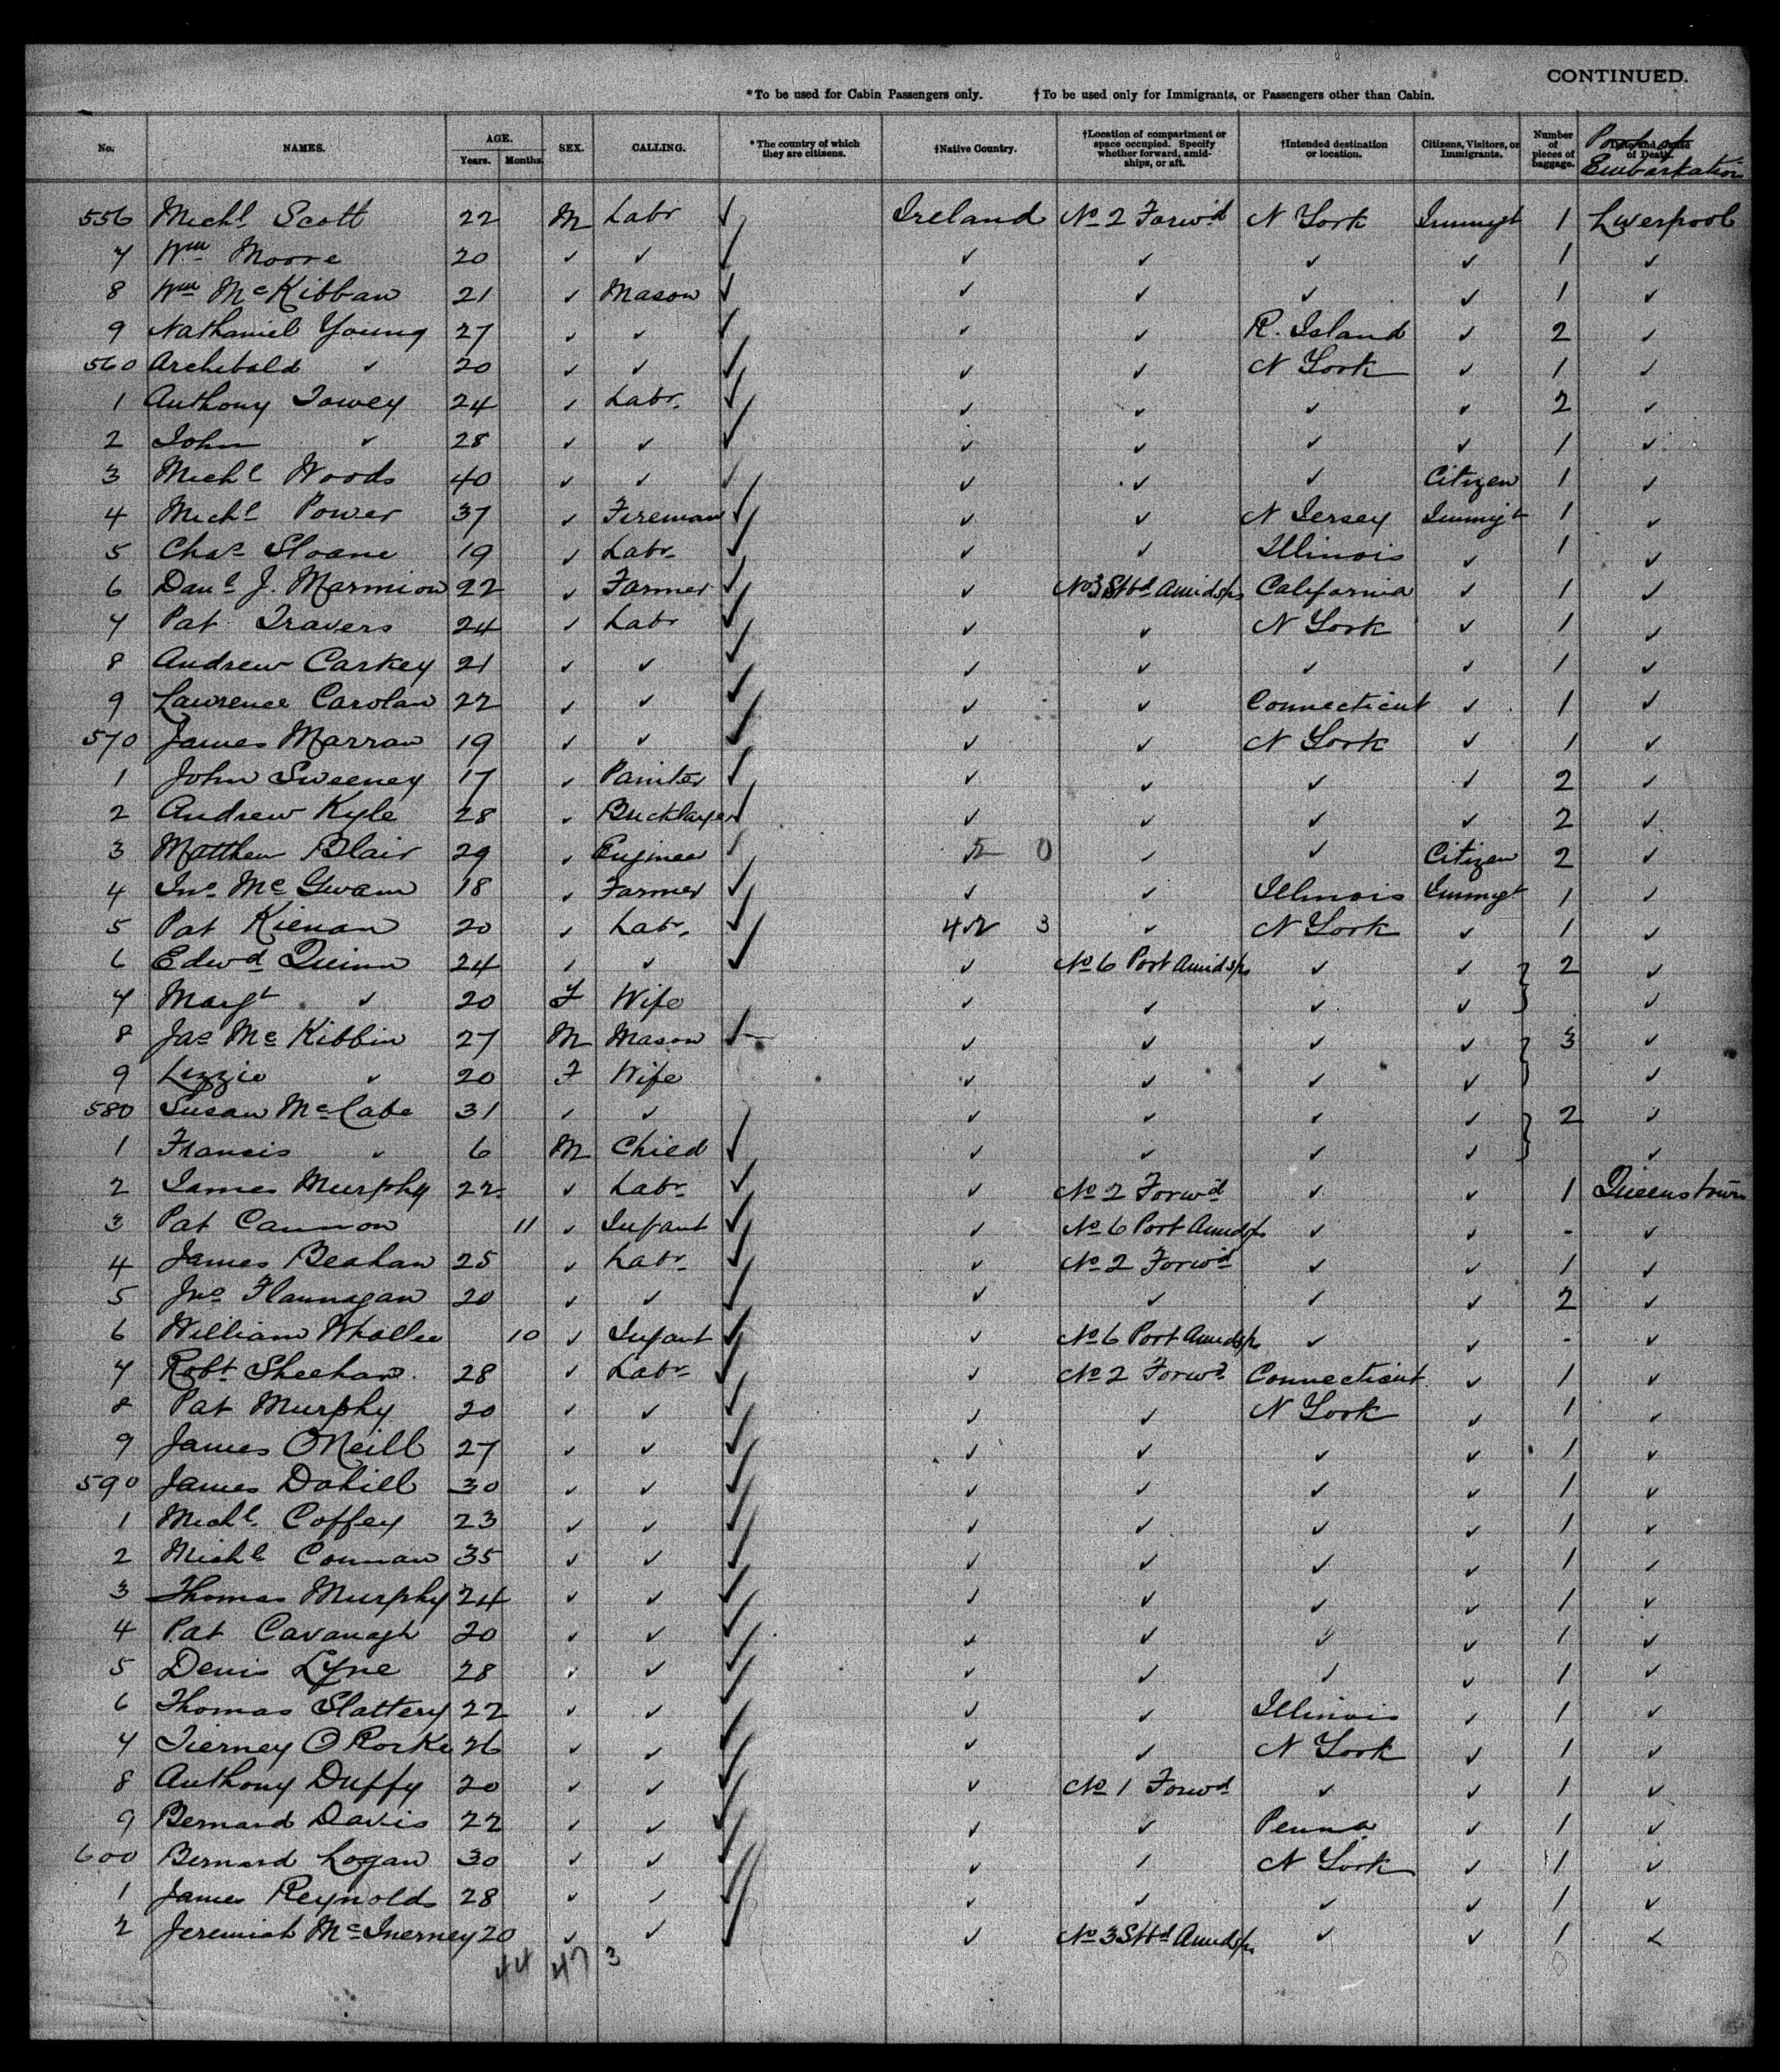 CONTINUED.
*To be used for Cabin Passengers only. †To be used only for Immigrants, or Passengers other than Cabin.
No. NAMES. AGE. Years. Months. SEX. CALLING. *The country of which they are citizens. †Native Country. †Location of compartment or space occupied. Specify whether forward, amidships, or aft. †Intended destination or location. Citizens, Visitors, or Immigrants. Number of pieces of baggage. Port of Embarkation
556 Michl Scott 22 M Labr ✓ Ireland No 2 Forwd N York Immigt 1 Liverpool
7 Wm Moore 20 ✓ ✓ ✓ ✓ ✓ ✓ ✓ 1 ✓
8 Wm McKibban 21 ✓ Mason ✓ ✓ ✓ ✓ ✓ 1 ✓
9 Nathaniel Young 27 ✓ ✓ ✓ ✓ ✓ R. Island ✓ 2 ✓
560 Archibald ✓ 20 ✓ ✓ ✓ ✓ ✓ N York ✓ 1 ✓
1 Anthony Towey 24 ✓ Labr. ✓ ✓ ✓ ✓ ✓ 2 ✓
2 John ✓ 28 ✓ ✓ ✓ ✓ ✓ ✓ ✓ 1 ✓
3 Michl Woods 40 ✓ ✓ ✓ ✓ ✓ ✓ Citizen 1 ✓
4 Michl Power 37 ✓ Fireman ✓ ✓ ✓ N Jersey Immigt 1 ✓
5 Chas Sloane 19 ✓ Labr ✓ ✓ ✓ Illinois ✓ 1 ✓
6 Danl J. Marmion 22 ✓ Farmer ✓ ✓ No 3 Stbd Amidsps California ✓ 1 ✓
7 Pat Travers 24 ✓ Labr ✓ ✓ ✓ N York ✓ 1 ✓
8 Andrew Carkey 21 ✓ ✓ ✓ ✓ ✓ ✓ ✓ 1 ✓
9 Lawrence Carolan 22 ✓ ✓ ✓ ✓ ✓ Connecticut ✓ 1 ✓
570 James Marran 19 ✓ ✓ ✓ ✓ ✓ N York ✓ 1 ✓
1 John Sweeney 17 ✓ Painter ✓ ✓ ✓ ✓ ✓ 2 ✓
2 Andrew Kyle 28 ✓ Bricklayer ✓ ✓ ✓ ✓ ✓ 2 ✓
3 Matthew Blair 29 ✓ Engineer ✓ ✓ 5 0 ✓ ✓ Citizen 2 ✓
4 Jno McGwam 18 ✓ Farmer ✓ ✓ ✓ Illinois Immigt 1 ✓
5 Pat Kienan 20 ✓ Labr. ✓ 42 3 ✓ N York ✓ 1 ✓
6 Edwd Quinn 24 ✓ ✓ ✓ ✓ No 6 Port Amidsps ✓ ✓ 2 ✓
7 Margt ✓ 20 F Wife ✓ ✓ ✓ ✓ ✓
8 Jas McKibbin 27 M Mason ✓ ✓ ✓ ✓ ✓ 3 ✓
9 Lizzie ✓ 20 F Wife ✓ ✓ ✓ ✓ ✓
580 Susan McCabe 31 ✓ ✓ ✓ ✓ ✓ ✓ 2 ✓
1 Francis ✓ 6 M Child ✓ ✓ ✓ ✓ ✓ ✓
2 James Murphy 22 ✓ Labr ✓ No 2 Forwd ✓ ✓ 1 Queenstown
3 Pat Cannon 11 ✓ Infant ✓ ✓ No 6 Port Amidsps ✓ ✓ - ✓
4 James Beahan 25 ✓ Labr ✓ ✓ No 2 Forwd ✓ ✓ 1 ✓
5 Jno Flannagan 20 ✓ ✓ ✓ ✓ ✓ ✓ ✓ 2 ✓
6 William Whallee 10 ✓ Infant ✓ ✓ No 6 Port Amidsps ✓ ✓ - ✓
7 Robt Sheehan 28 ✓ Labr ✓ ✓ No 2 Forwd Connecticut ✓ 1 ✓
8 Pat Murphy 20 ✓ ✓ ✓ ✓ ✓ N York ✓ 1 ✓
9 James ONeill 27 ✓ ✓ ✓ ✓ ✓ ✓ ✓ 1 ✓
590 James Dahill 30 ✓ ✓ ✓ ✓ ✓ ✓ ✓ 1 ✓
1 Michl Coffey 23 ✓ ✓ ✓ ✓ ✓ ✓ ✓ 1 ✓
2 Michl Counan 35 ✓ ✓ ✓ ✓ ✓ ✓ ✓ 1 ✓
3 Thomas Murphy 24 ✓ ✓ ✓ ✓ ✓ ✓ ✓ 1 ✓
4 Pat Cavanagh 20 ✓ ✓ ✓ ✓ ✓ ✓ ✓ 1 ✓
5 Denis Lyne 28 ✓ ✓ ✓ ✓ ✓ ✓ ✓ 1 ✓
6 Thomas Slattery 22 ✓ ✓ ✓ ✓ ✓ Illinois ✓ 1 ✓
7 Tierney O Rorke 26 ✓ ✓ ✓ ✓ ✓ N York ✓ 1 ✓
8 Anthony Duffy 20 ✓ ✓ ✓ ✓ No 1 Forwd ✓ ✓ 1 ✓
9 Bernard Davis 22 ✓ ✓ ✓ ✓ ✓ Penna ✓ 1 ✓
600 Bernard Logan 30 ✓ ✓ ✓ ✓ ✓ N York ✓ 1 ✓
1 James Reynolds 28 ✓ ✓ ✓ ✓ ✓ ✓ ✓ 1 ✓
2 Jeremiah McInerney 20 ✓ ✓ ✓ ✓ No 3 Stbd Amidsps ✓ ✓ 1 ✓
44 47 3